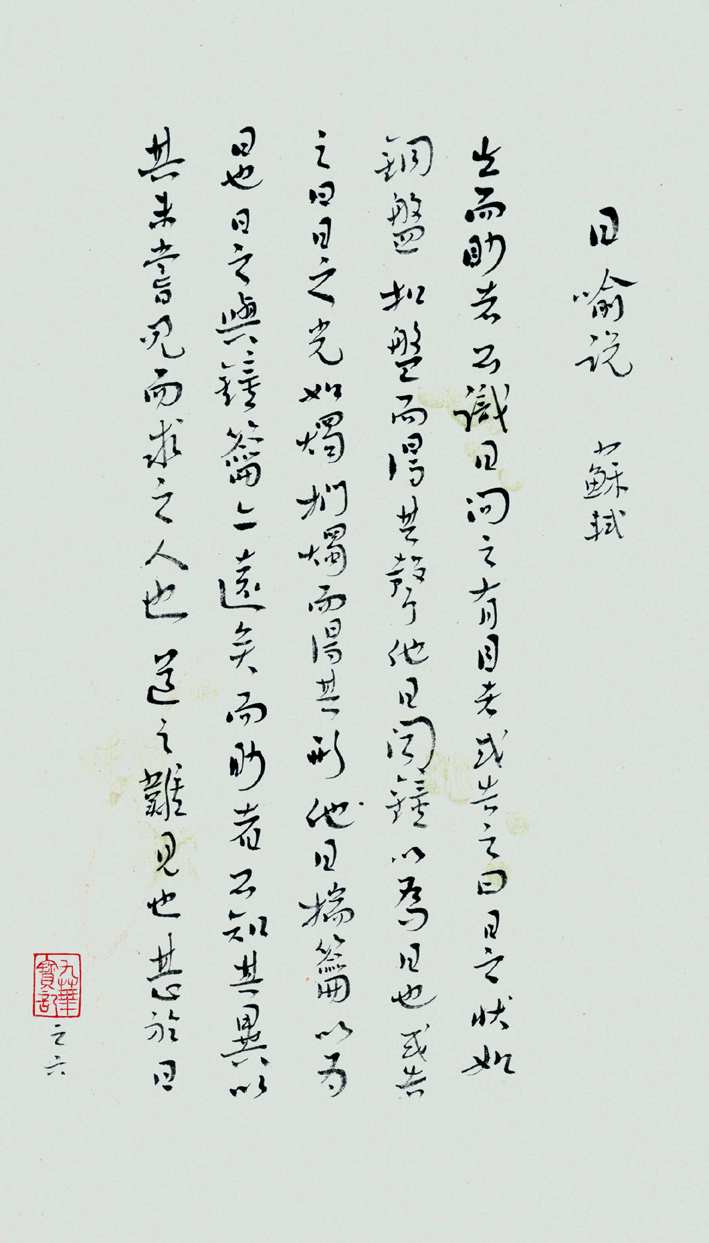 日喻说 蘇軾
生而眇者不識日问之有目者或告之曰日之狀如
銅盤扣盤而得其聲他日闻鐘以為日也或告
之曰日之光如燭捫燭而得其形他日揣籥以为
日也日之與鐘籥亦遠矣而眇者不知其異以
其未嘗見而求之人也道之難見也甚於日
九華寶記
之六